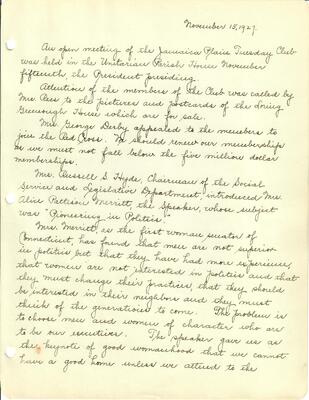 November 15, 1927.
An open meeting of the Jamaica Plain Tuesday Club
was held in the Unitarian Parish House November
fifteenth, the President presiding.
Attention of the members of the Club was called by
Mrs. to the pictures and postcards of the Loring
Greenough House which are for sale.
Mrs. George Derby appealed to the members to
join the Red Cross. We should renew our memberships
as we must not fall below the five million dollar
memberships.
Mrs. Russell S. Hyde, Chairman of the Social
Service and Legislative Department, introduced Mrs.
Alice Pattison Merritt, the Speaker, whose subject
was "Pioneering in Politics".
Mrs. Merritt, as the first woman senator of
Connecticut, has found that men are not superior
in politics but that they have had more experience,
that women are not interested in politics and that
they must change their practices, that they should
be interested in their neighbors and they must
think of the generations to come. The problem is
to choose men and women of character who are
to be our executives. The speaker gave us as
the keynote of good womanhood that we cannot
have a good home unless we attend to the